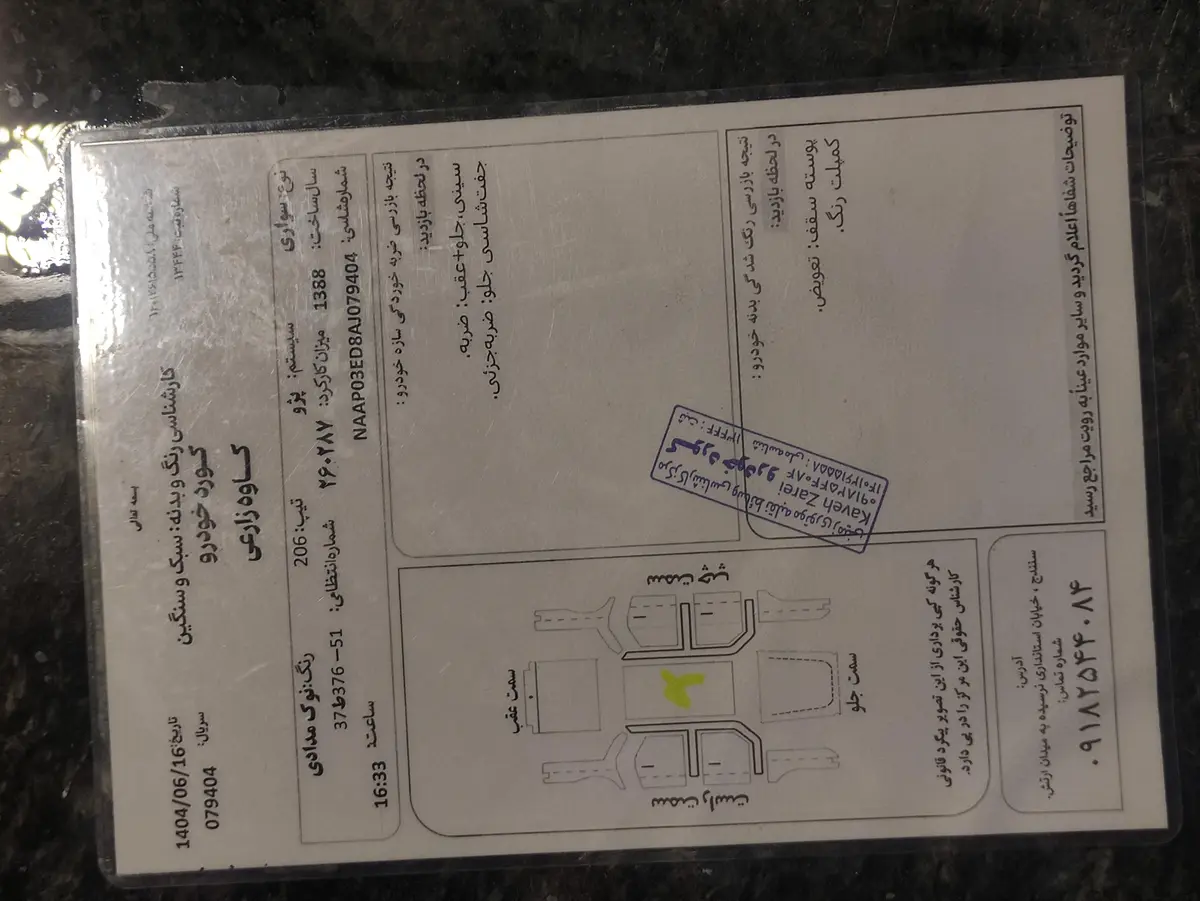 بسمه تعالی
کارشناسی رنگ و بدنه: سبک و سنگین
کوره خودرو
کاوه زارعی
شماره ثبت: ۱۳۴۴۴
تاریخ: 1404/06/16
سریال:
079404
نوع: سواری سیستم: پژو تیپ: 206 رنگ: نوک مدادی
سال ساخت: 1388 میزان کارکرد: ۲۶۰۲۸۷ شماره انتظامی: 51 – 376ط37
شماره شاسی: NAAP03ED8AJ079404 ساعت: 16:33
نتیجه بازرسی ضربه خوردگی سازه خودرو:
در لحظه بازدید:
سینی، جلو+عقب: ضربه.
جفت شاسی جلو: ضربه جزئی.
سمت عقب
سمت جلو
هر گونه کپی برداری از این تصویر پیگرد قانونی
کارشناس حقوقی این مرکز را در پی دارد.
نتیجه بازرسی رنگ شدگی بدنه خودرو:
در لحظه بازدید:
پوسته سقف: تعویض.
کمپلت رنگ.
مرکز کارشناسی وسائط نقلیه موتوری زمینی
کوره خودرو
Kaveh Zarei
۰۹۱۸۲۵۴۴۰۸۴
ثبت: ۱۳۴۴۴
توضیحات شفاهاً اعلام گردید و سایر موارد عیناً به رویت مراجع رسید
آدرس:
سنندج، خیابان استانداری نرسیده به میدان ارتش.
شماره تماس:
۰۹۱۸۲۵۴۴۰۸۴